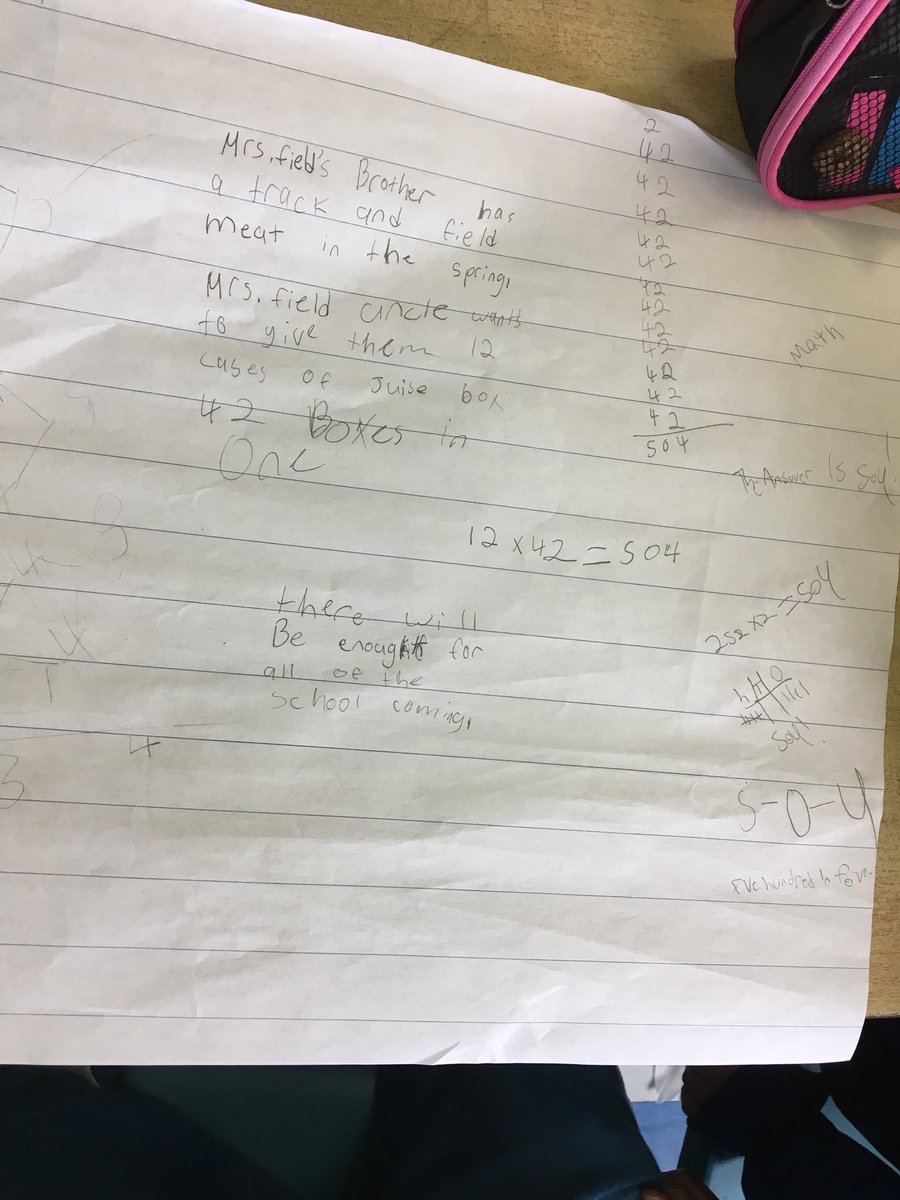 Mrs. field's Brother has
a track and field
meat in the spring,
Mrs. field uncle wants
to give them 12
cases of Juise box
42 Boxes in
One
2
42
42
42
42
42
42
42
42
42
42
42
42
504
Math
The Answer is 504.
12 x 42 = 504
252 x 2 = 504
there will
Be enough for
all of the
school coming,
h t O
504
4
5-0-4
Five hundred n four
3